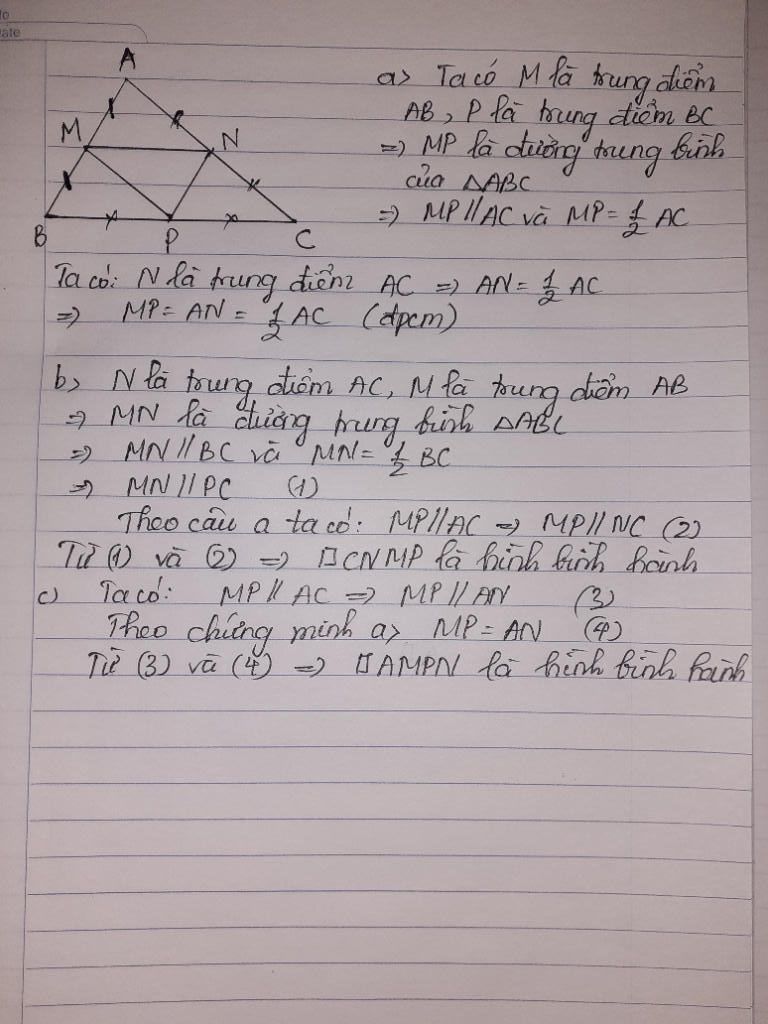 A
M
N
B
P
C
a> Ta có M là trung điểm
AB, P là trung điểm BC
=> MP là đường trung bình
của △ABC
=> MP//AC và MP = 1/2 AC
Ta có: N là trung điểm AC => AN = 1/2 AC
=> MP = AN = 1/2 AC (đpcm)
b> N là trung điểm AC, M là trung điểm AB
=> MN là đường trung bình △ABC
=> MN//BC và MN = 1/2 BC
=> MN//PC (1)
Theo câu a ta có: MP//AC => MP//NC (2)
Từ (1) và (2) => □CNMP là hình bình hành
c) Ta có: MP // AC => MP//AN (3)
Theo chứng minh a> MP = AN (4)
Từ (3) và (4) => □AMPN là hình bình hành